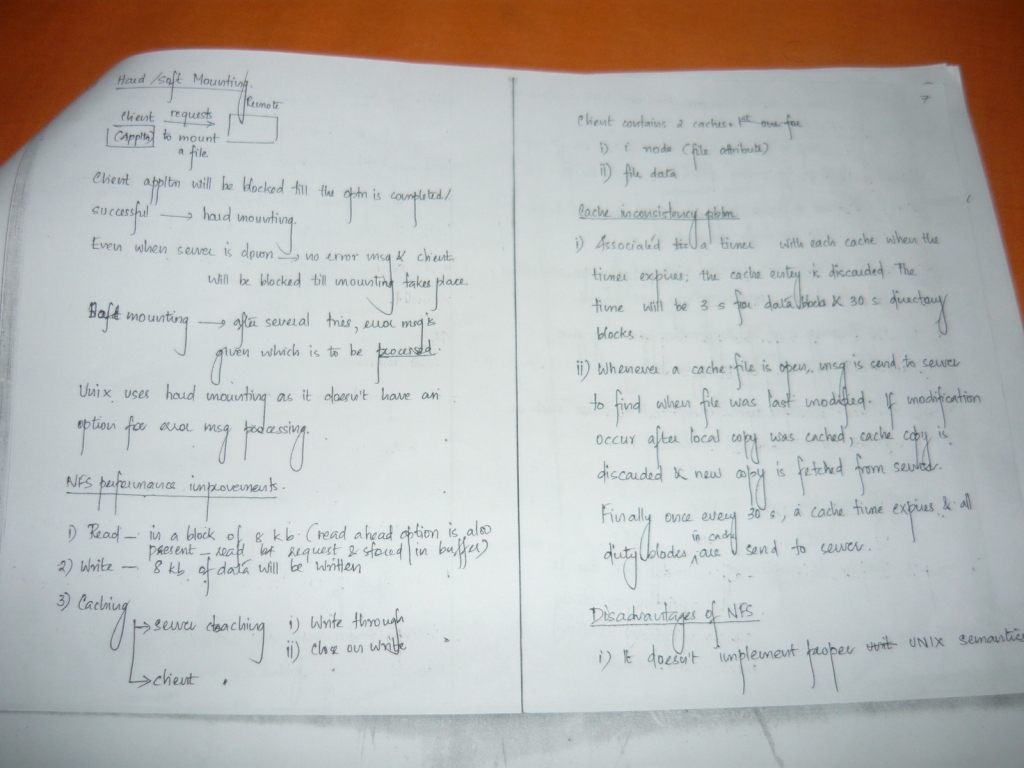 Hard /Soft Mounting.
Remote
Client requests
(Appltn) to mount
a file
Client appltn will be blocked till the optn is completed/
successful → hard mounting.
Even when server is down → no error msg & client
will be blocked till mounting takes place
Soft mounting → after several tries, error msg is
given which is to be processed.
Unix uses hard mounting as it doesn't have an
option for error msg processing.
NFS performance improvements.
1) Read - in a block of 8 kb (read ahead option is also
present - read bf request & stored in buffer)
2) Write - 8 kb of data will be written
3) Caching
→ server caching i) Write through
ii) close on write
→ client
7
Client contains 2 caches. 1st one for
i) i node (file attribute)
ii) file data
Cache inconsistency pblm
i) Associated a timer with each cache when the
timer expires, the cache entry is discarded. The
time will be 3 s for data blocks & 30 s directory
blocks.
ii) Whenever a cache file is open, msg is send to server
to find when file was last modified. If modification
occur after local copy was cached, cache copy is
discarded & new copy is fetched from server.
Finally once every 30 s, a cache time expires & all
in cache
dirty blocks are send to server.
Disadvantages of NFS
i) It doesn't implement proper UNIX semantics